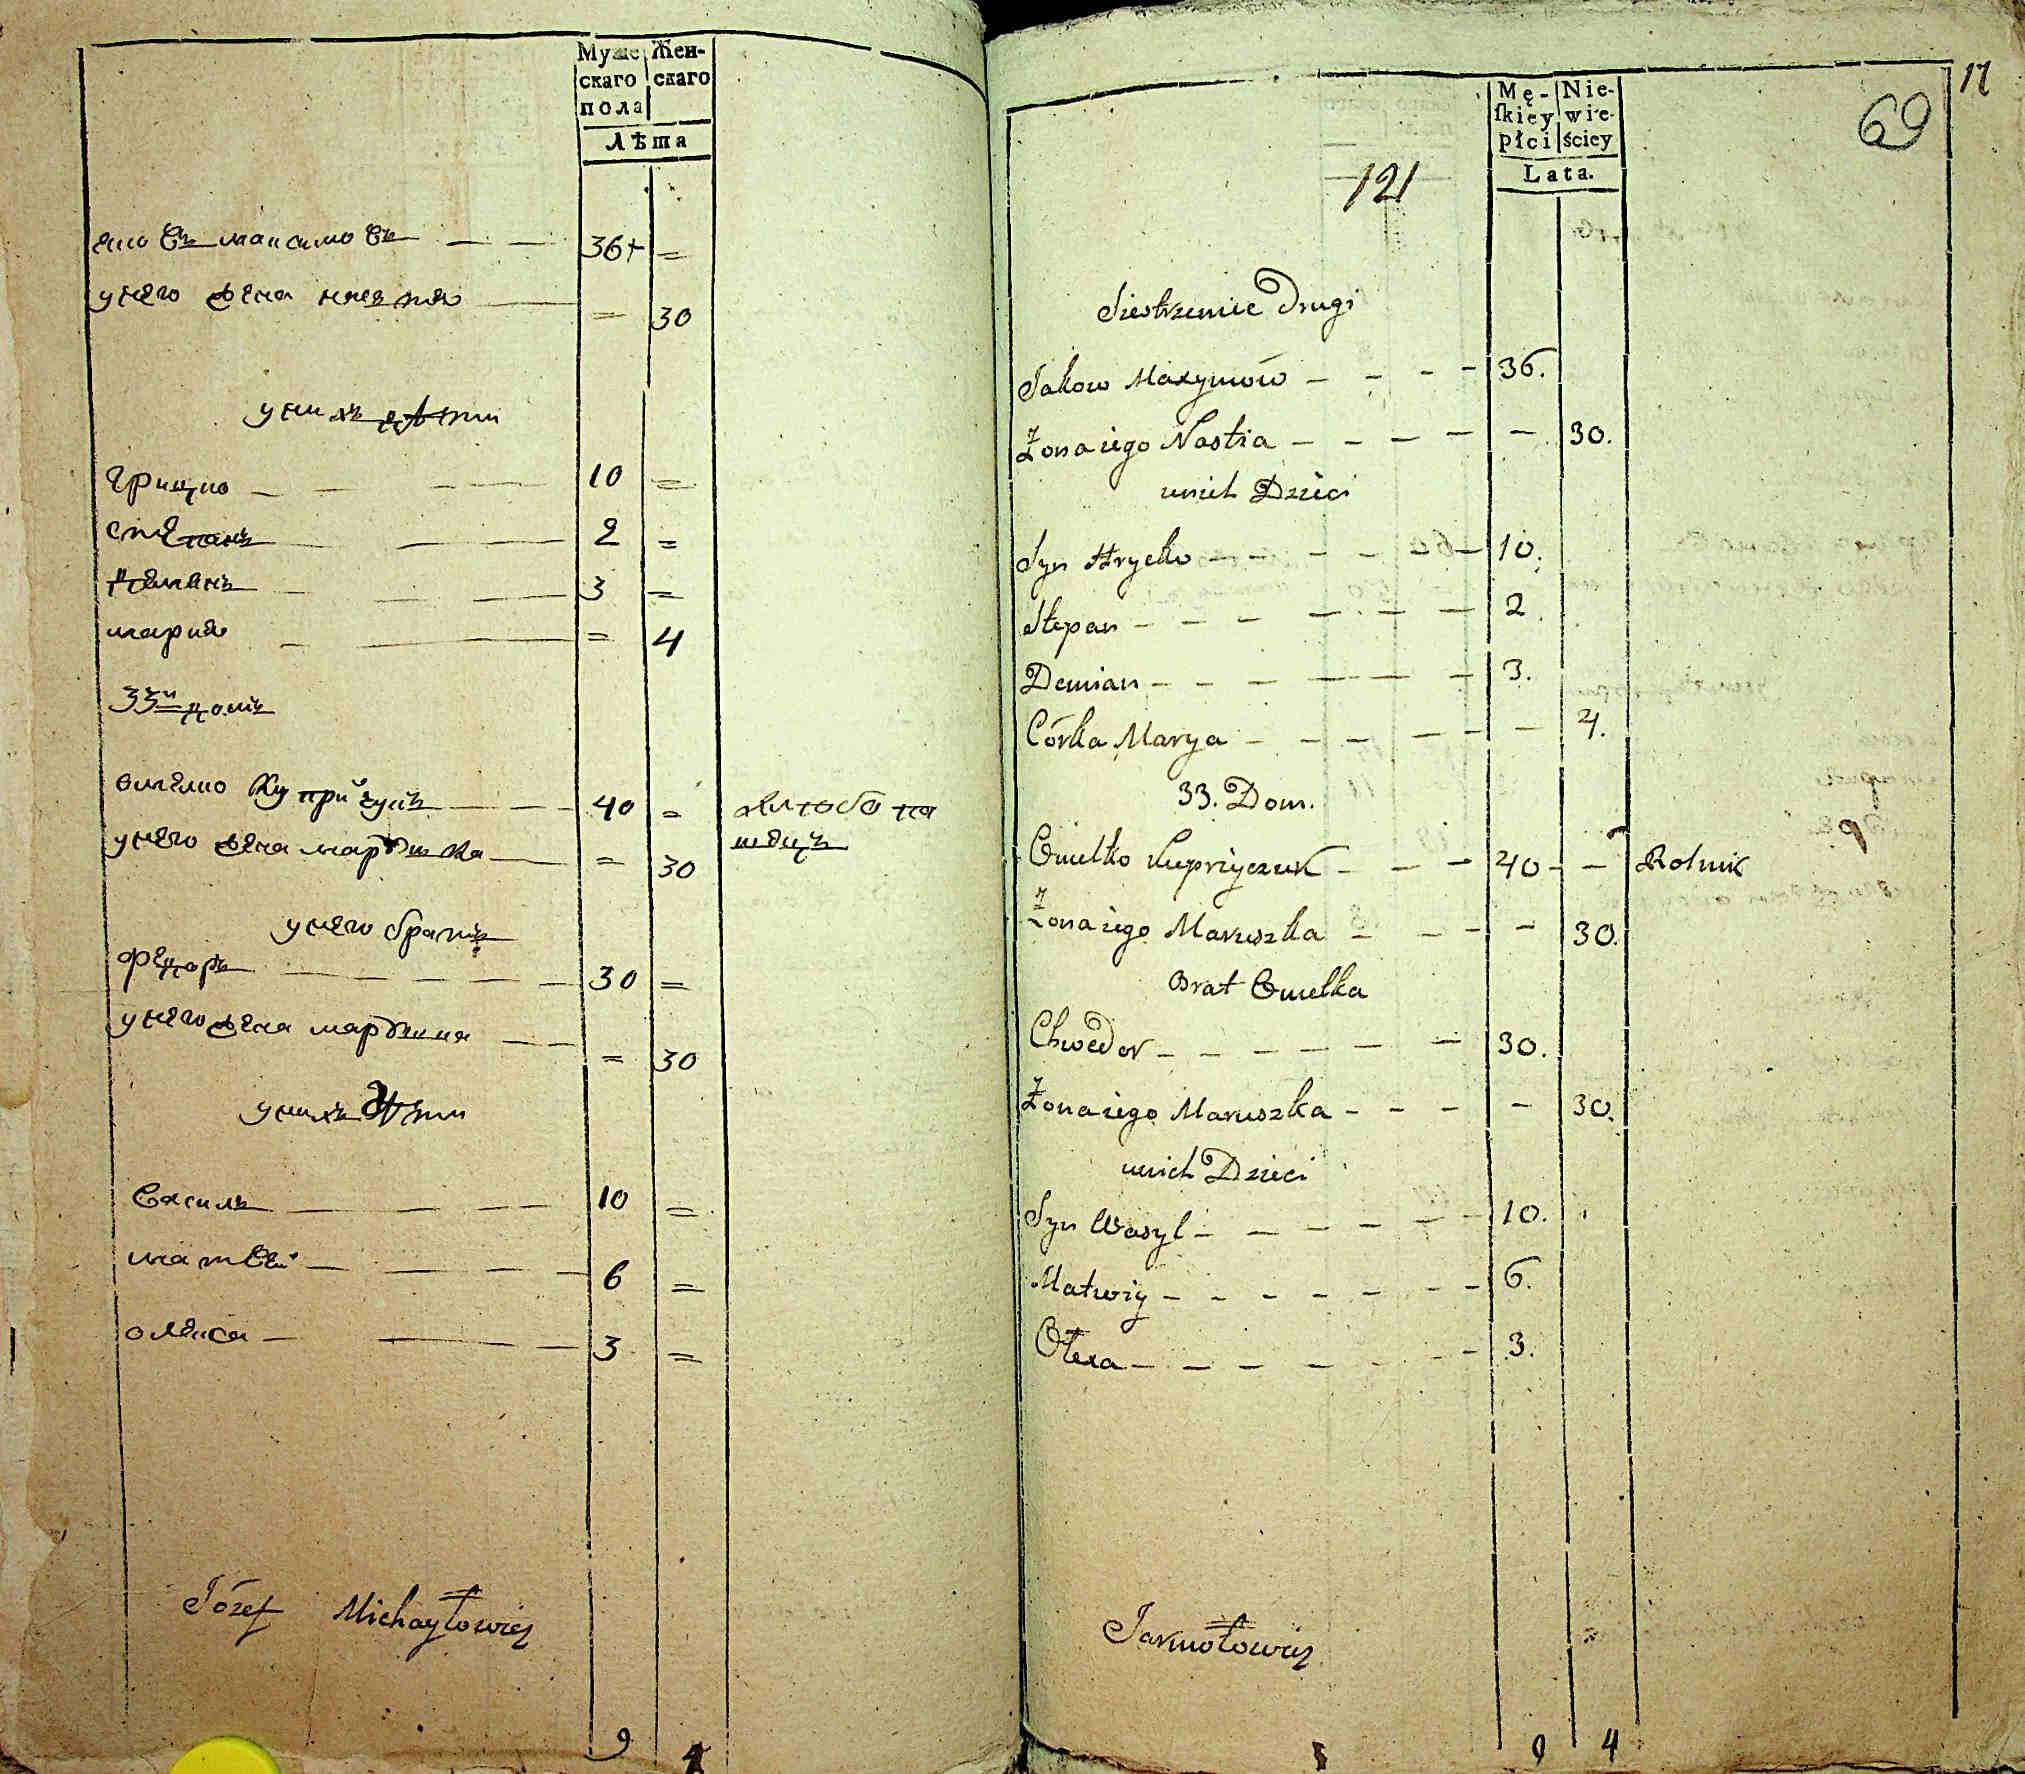 Муже
скаго
пола
Жен-
скаго
Лѣта
яковъ максимовъ 36 =
у него жена настя = 30
у нихъ дѣти
грицко 10 =
степанъ 2 =
демянъ 3 =
мария = 4
33й домъ
омелко куприйчукъ 40 = хлебопа
шецъ
у него жена марушка = 30
у него братъ
федоръ 30 =
у него жена = 30
у нихъ дѣти
василь 10 =
матвей 6 =
олекса 3 =
Józef Michayłowicz
9 4
17
69
Mę-
skiey
płci
Nie-
wie-
ściey
Lata.
121
Siestrzeniec Drugi
Jakow Maxymów 36.
Żona iego Nastia - 30.
u nich Dzieci
Syn Hryćko 10.
Stepan 2
Demian 3.
Córka Marya - 4.
33. Dom.
Omelko Kupriyczuk 40 - Rolnik
Żona iego Maruszka - 30.
Brat Omelka
Chwedor 30.
Żona iego Maruszka - 30.
u nich Dzieci
Syn Wasyl 10.
Matwiy 6.
Ołexa 3.
Jarmołowicz
9 4